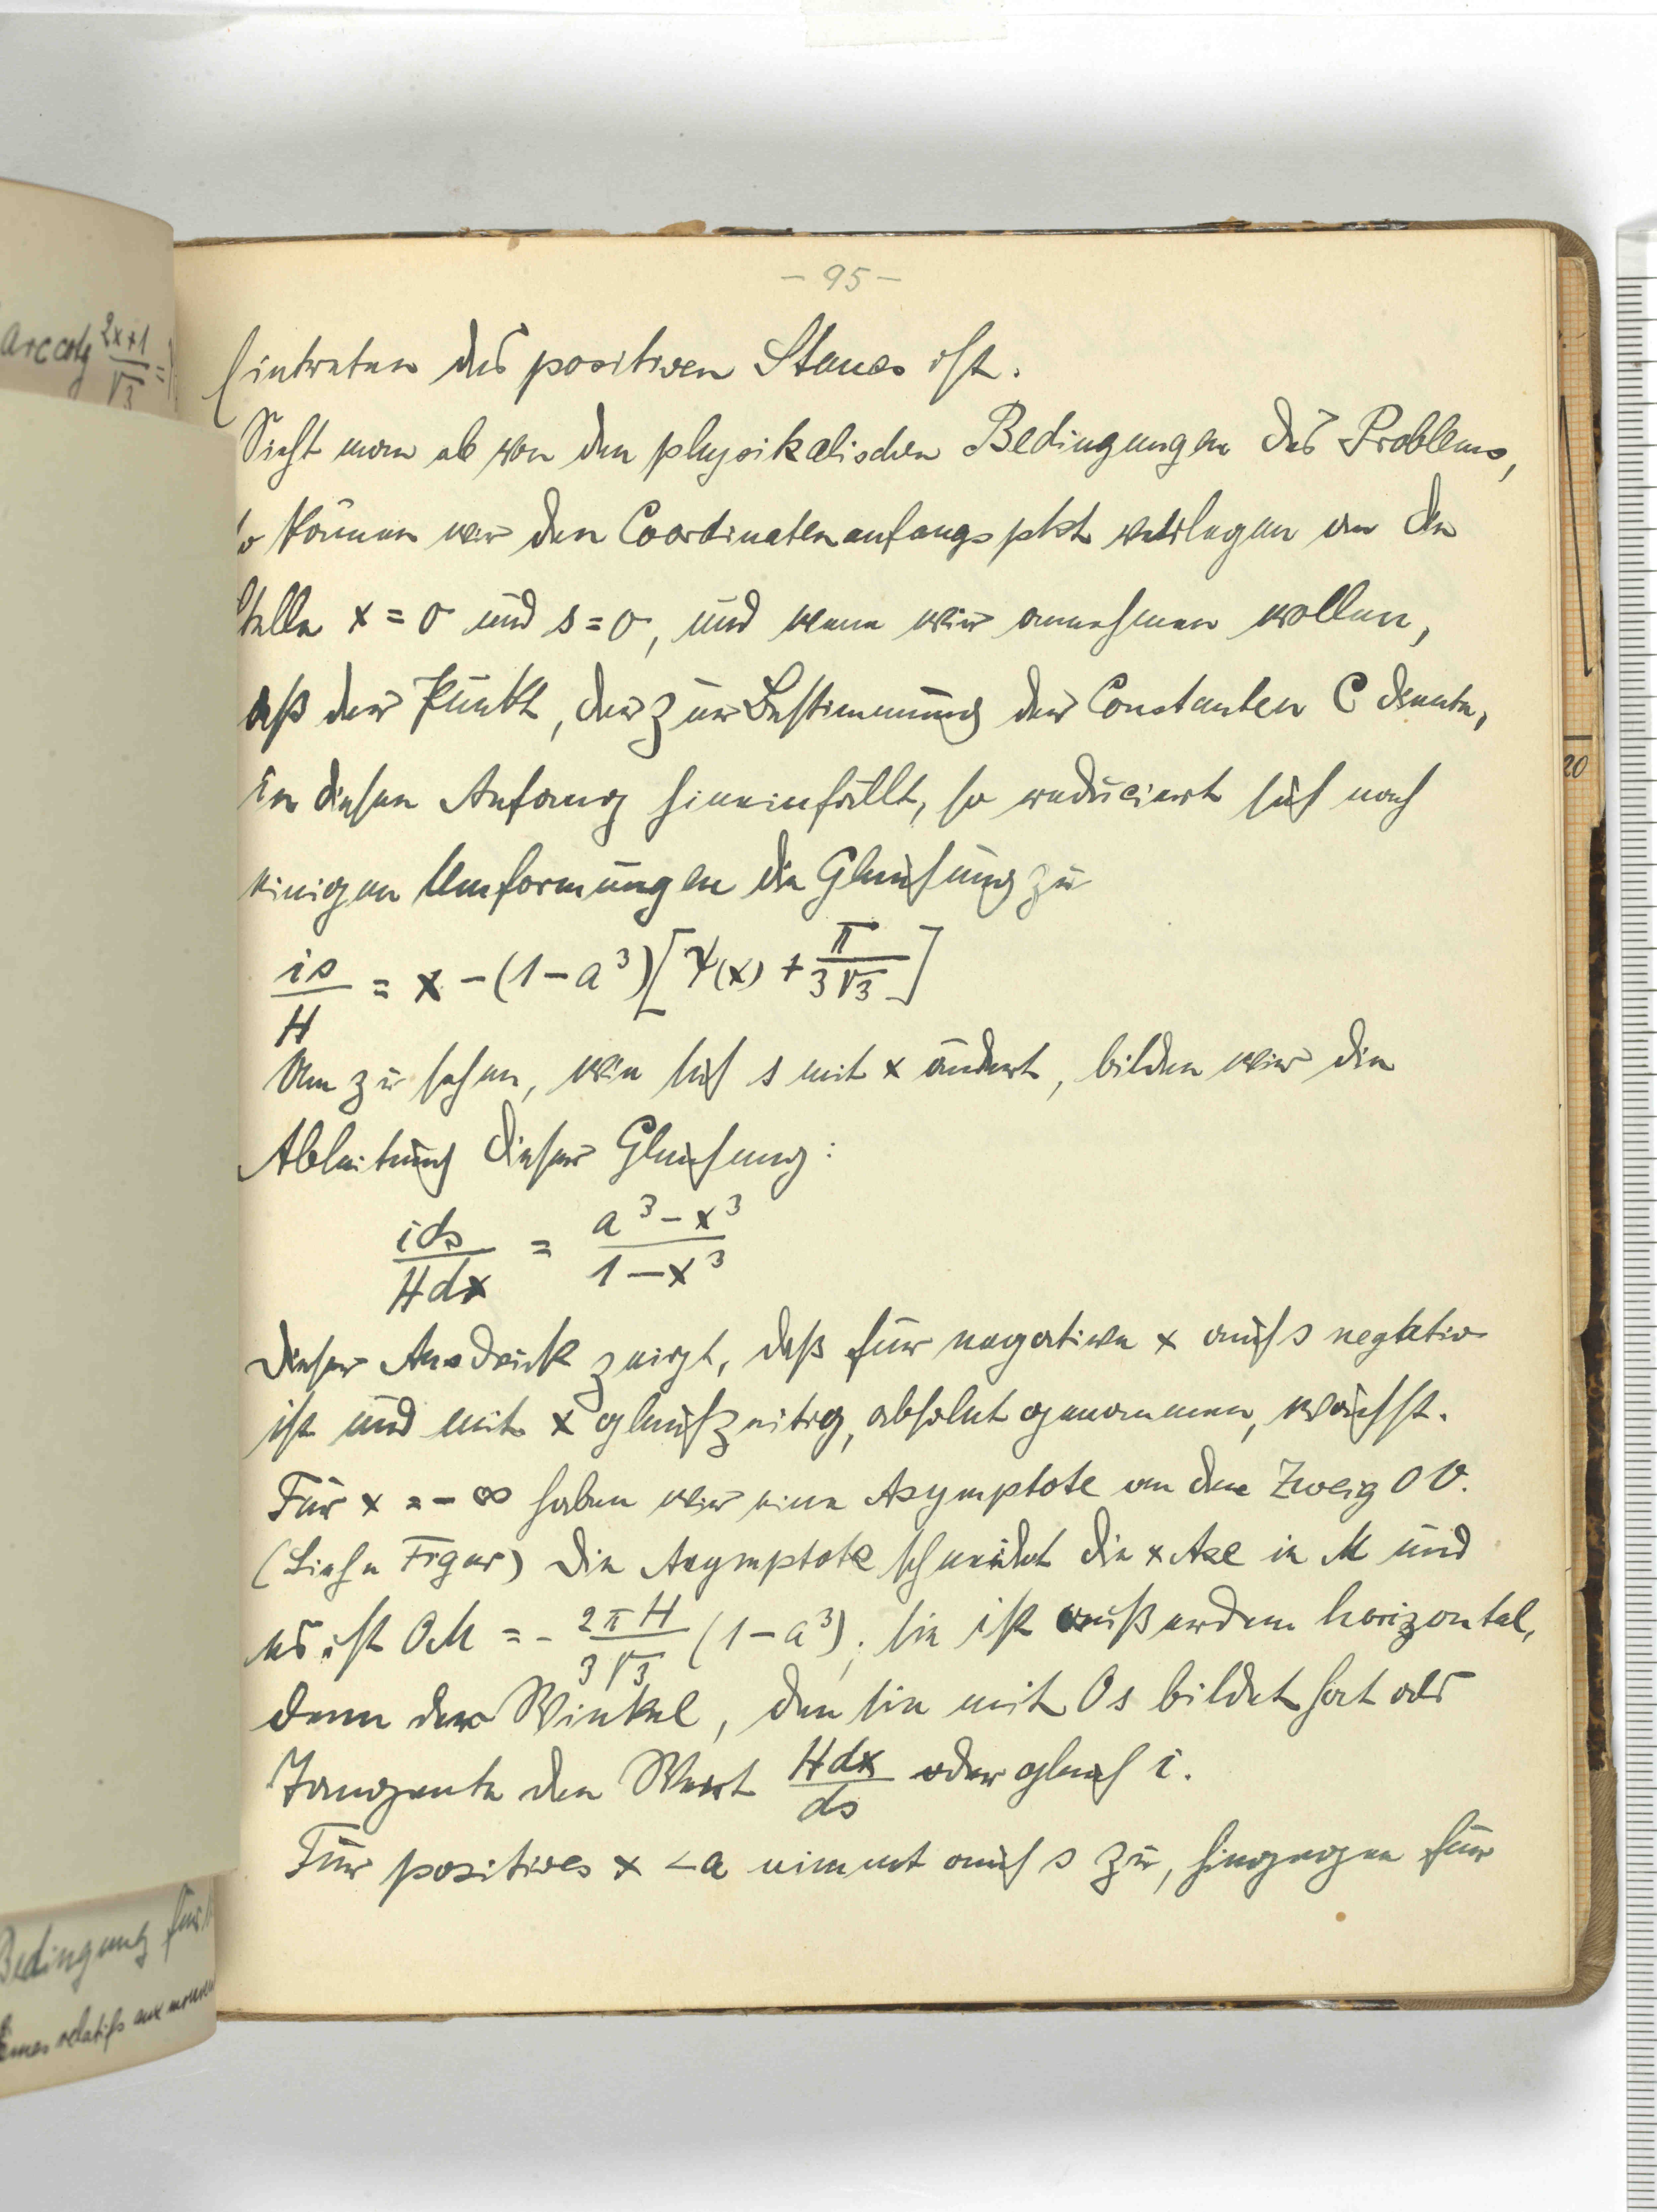 - 95 -
Eintreten des positiven Staues ist.
Sieht man ab von den physikalischen Bedingungen des Problems,
so können wir den Coordinatenanfangspkt verlegen an die
Stelle x = 0 und s = 0, und wenn wir annehmen wollen,
daß der Punkt, der zur Bestimmung der Constanten C diente,
in diesen Anfang hineinfällt, so reduciert sich nach
einigen Umformungen die Gleichung zu
is/H = x - (1 - a³)[ψ(x) + π/3√3]
Um zu sehen, wie sich s mit x ändert, bilden wir die
Ableitung dieser Gleichung:
ids/Hdx = a³ - x³/1 - x³
Dieser Ausdruck zeigt, daß für negative x auch s negativ
ist und mit x gleichzeitig, absolut genommen, wächst.
Für x = - ∞ haben wir eine Asymptote an den Zweig OV.
(Siehe Figur) Die Asymptote schneidet die x Axe in M und
es ist OM = - 2πH/3√3 (1 - a³); sie ist außerdem horizontal,
denn der Winkel, den sie mit Os bildet hat als
Tangente den Wert Hdx/ds oder gleich i.
Für positives x < a nimmt auch s zu, hingegen für
arc cotg 2x+1/√3 =
Bedingung für
relatifs aux
20